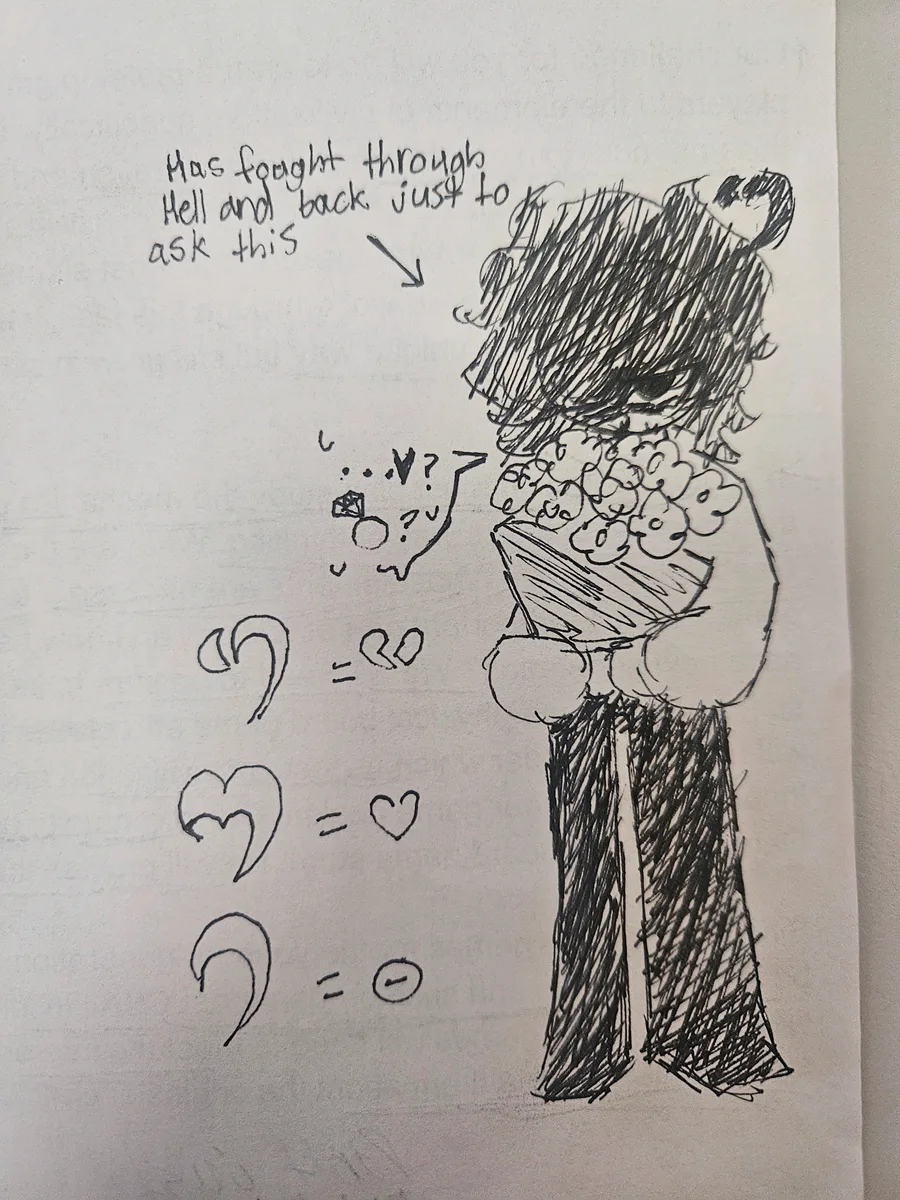 Has foaght through
Hell and back just to
ask this
...♥?
?
=
=
=